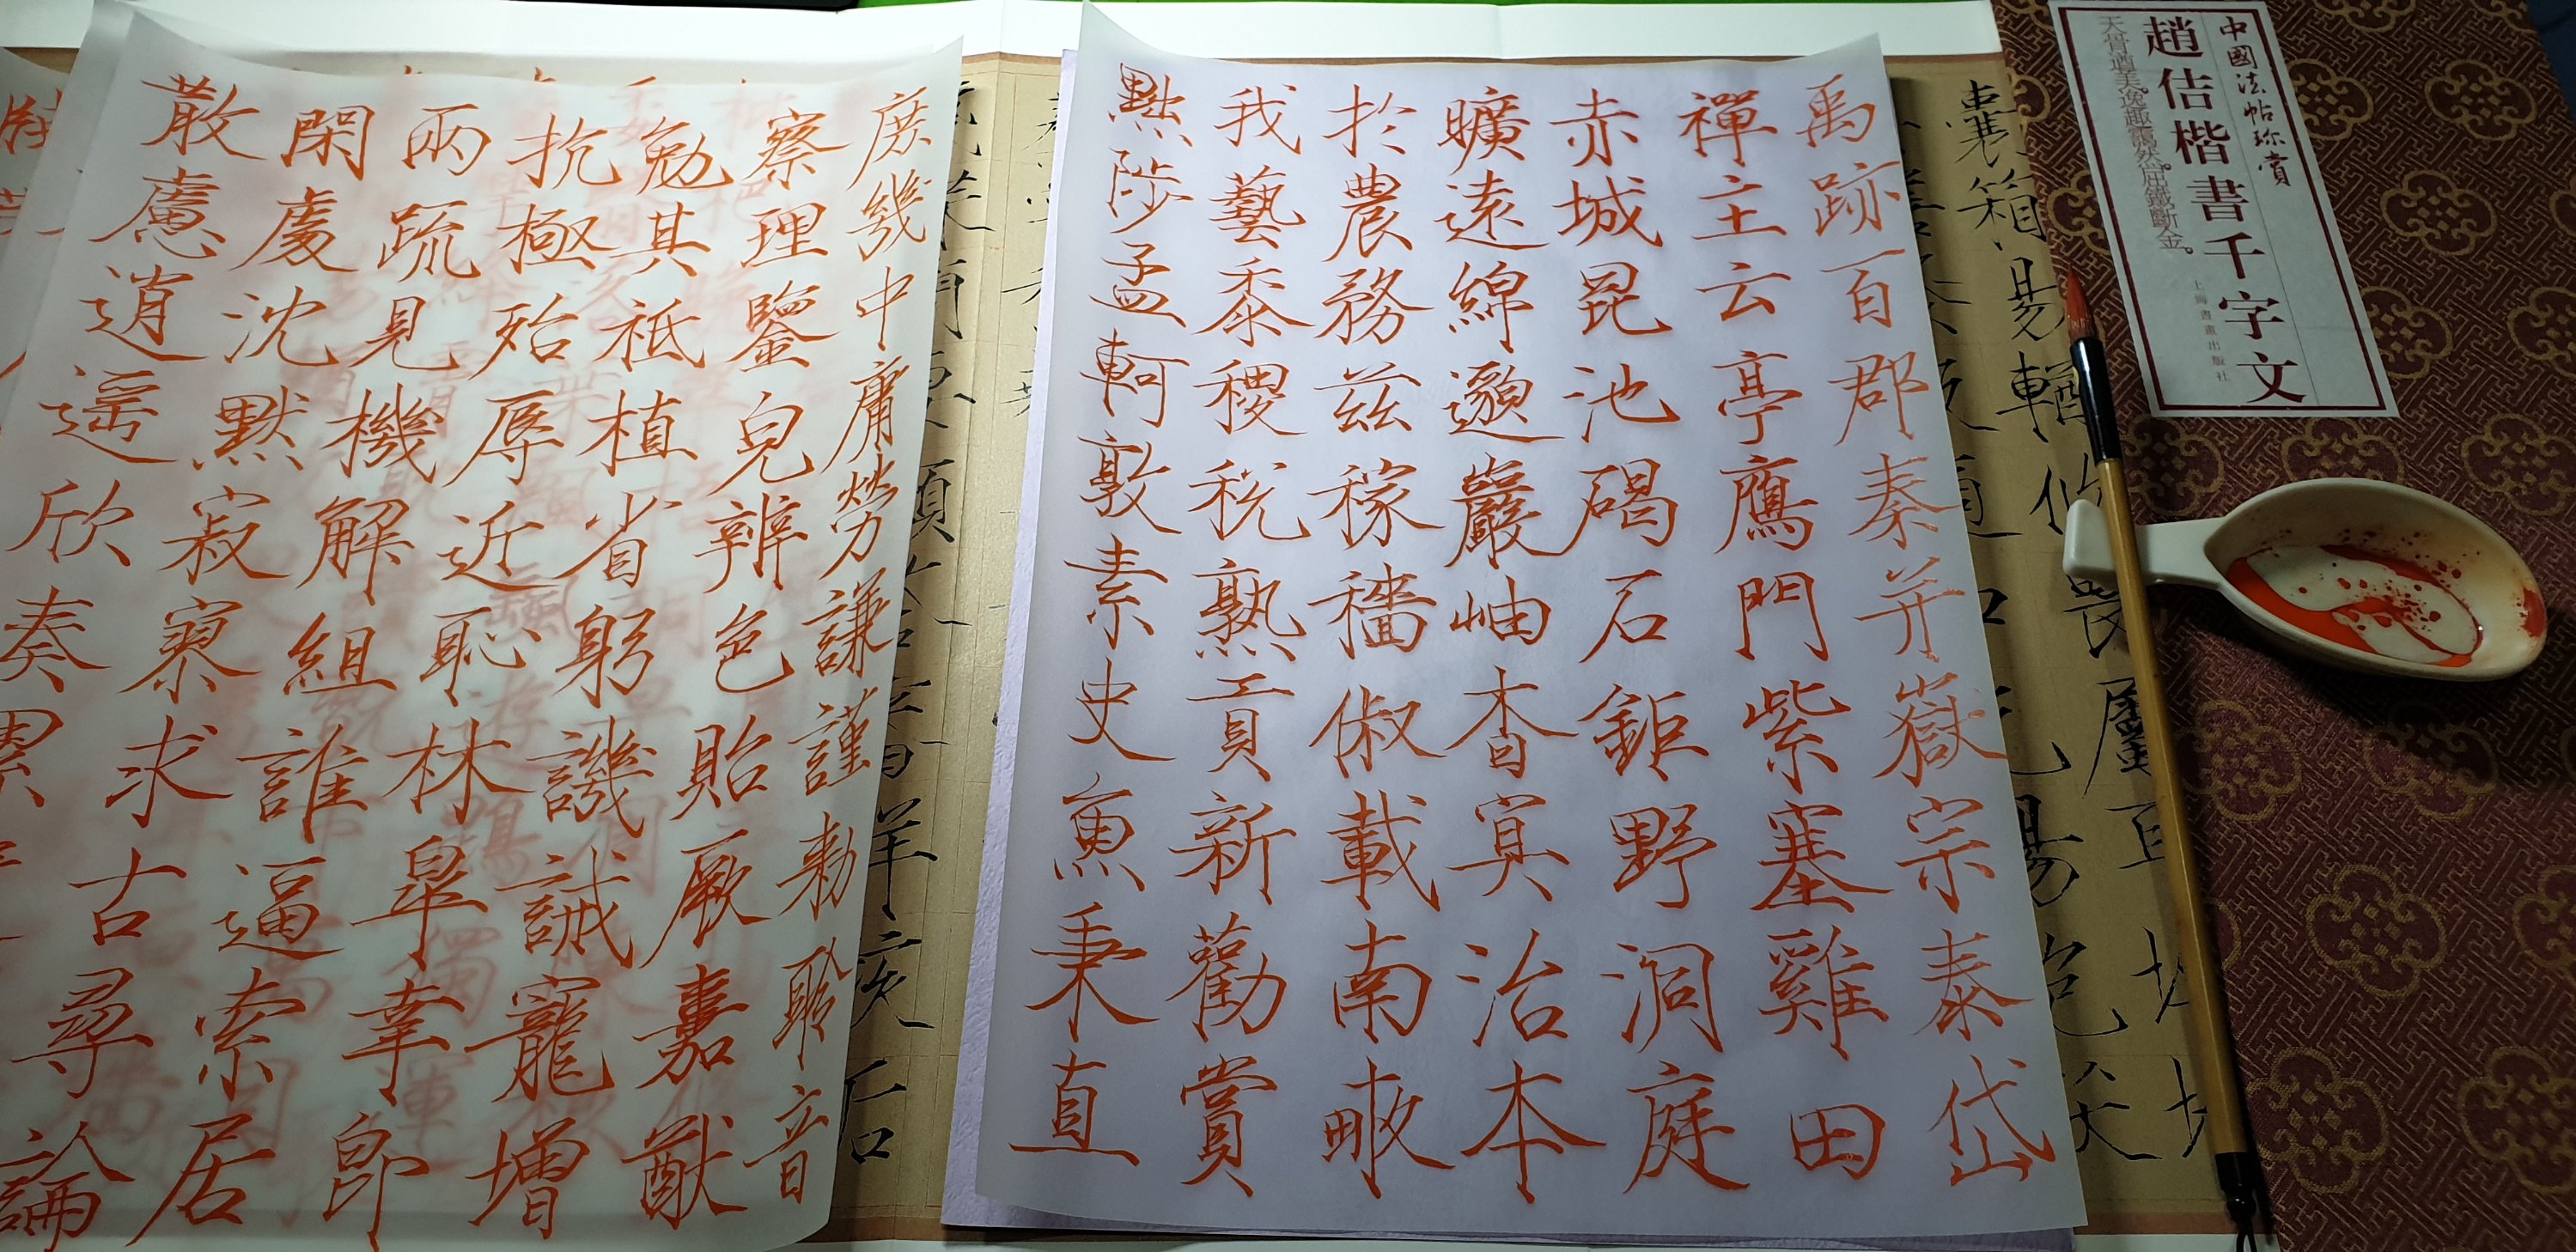 中國法帖珎賞
趙佶楷書千字文
天骨遒美。逸趣靄然。屈鐵斷金。
上海書畫出版社
囊箱易輶攸畏屬耳
禹跡百郡秦并嶽宗泰岱
禪主云亭鴈門紫塞雞田
赤城昆池碣石鉅野洞庭
曠遠綿邈巖岫杳冥治本
於農務茲稼穡俶載南畝
我藝黍稷稅熟貢新勸賞
黜陟孟軻敦素史魚秉直
庶幾中庸勞謙謹勅聆音
察理鑒皃辨色貽厥嘉猷
勉其祗植省躬譏誡寵增
抗極殆辱近恥林皋幸即
兩疏見機解組誰逼索居
閑處沈默寂寥求古尋論
散慮逍遙欣奏累